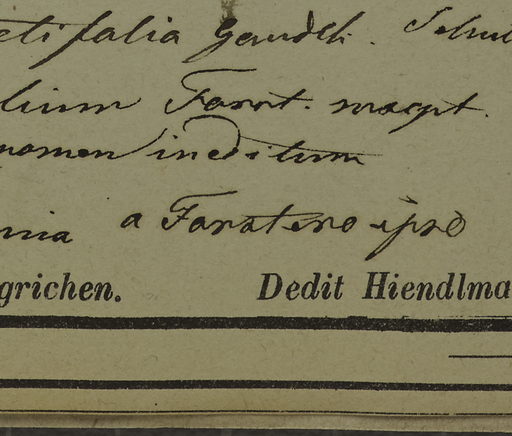 etifolia Gaudch. Schul
lium Forst. mscpt.
nomen ineditum
nia a Forstero ipso
grichen. Dedit Hiendlma